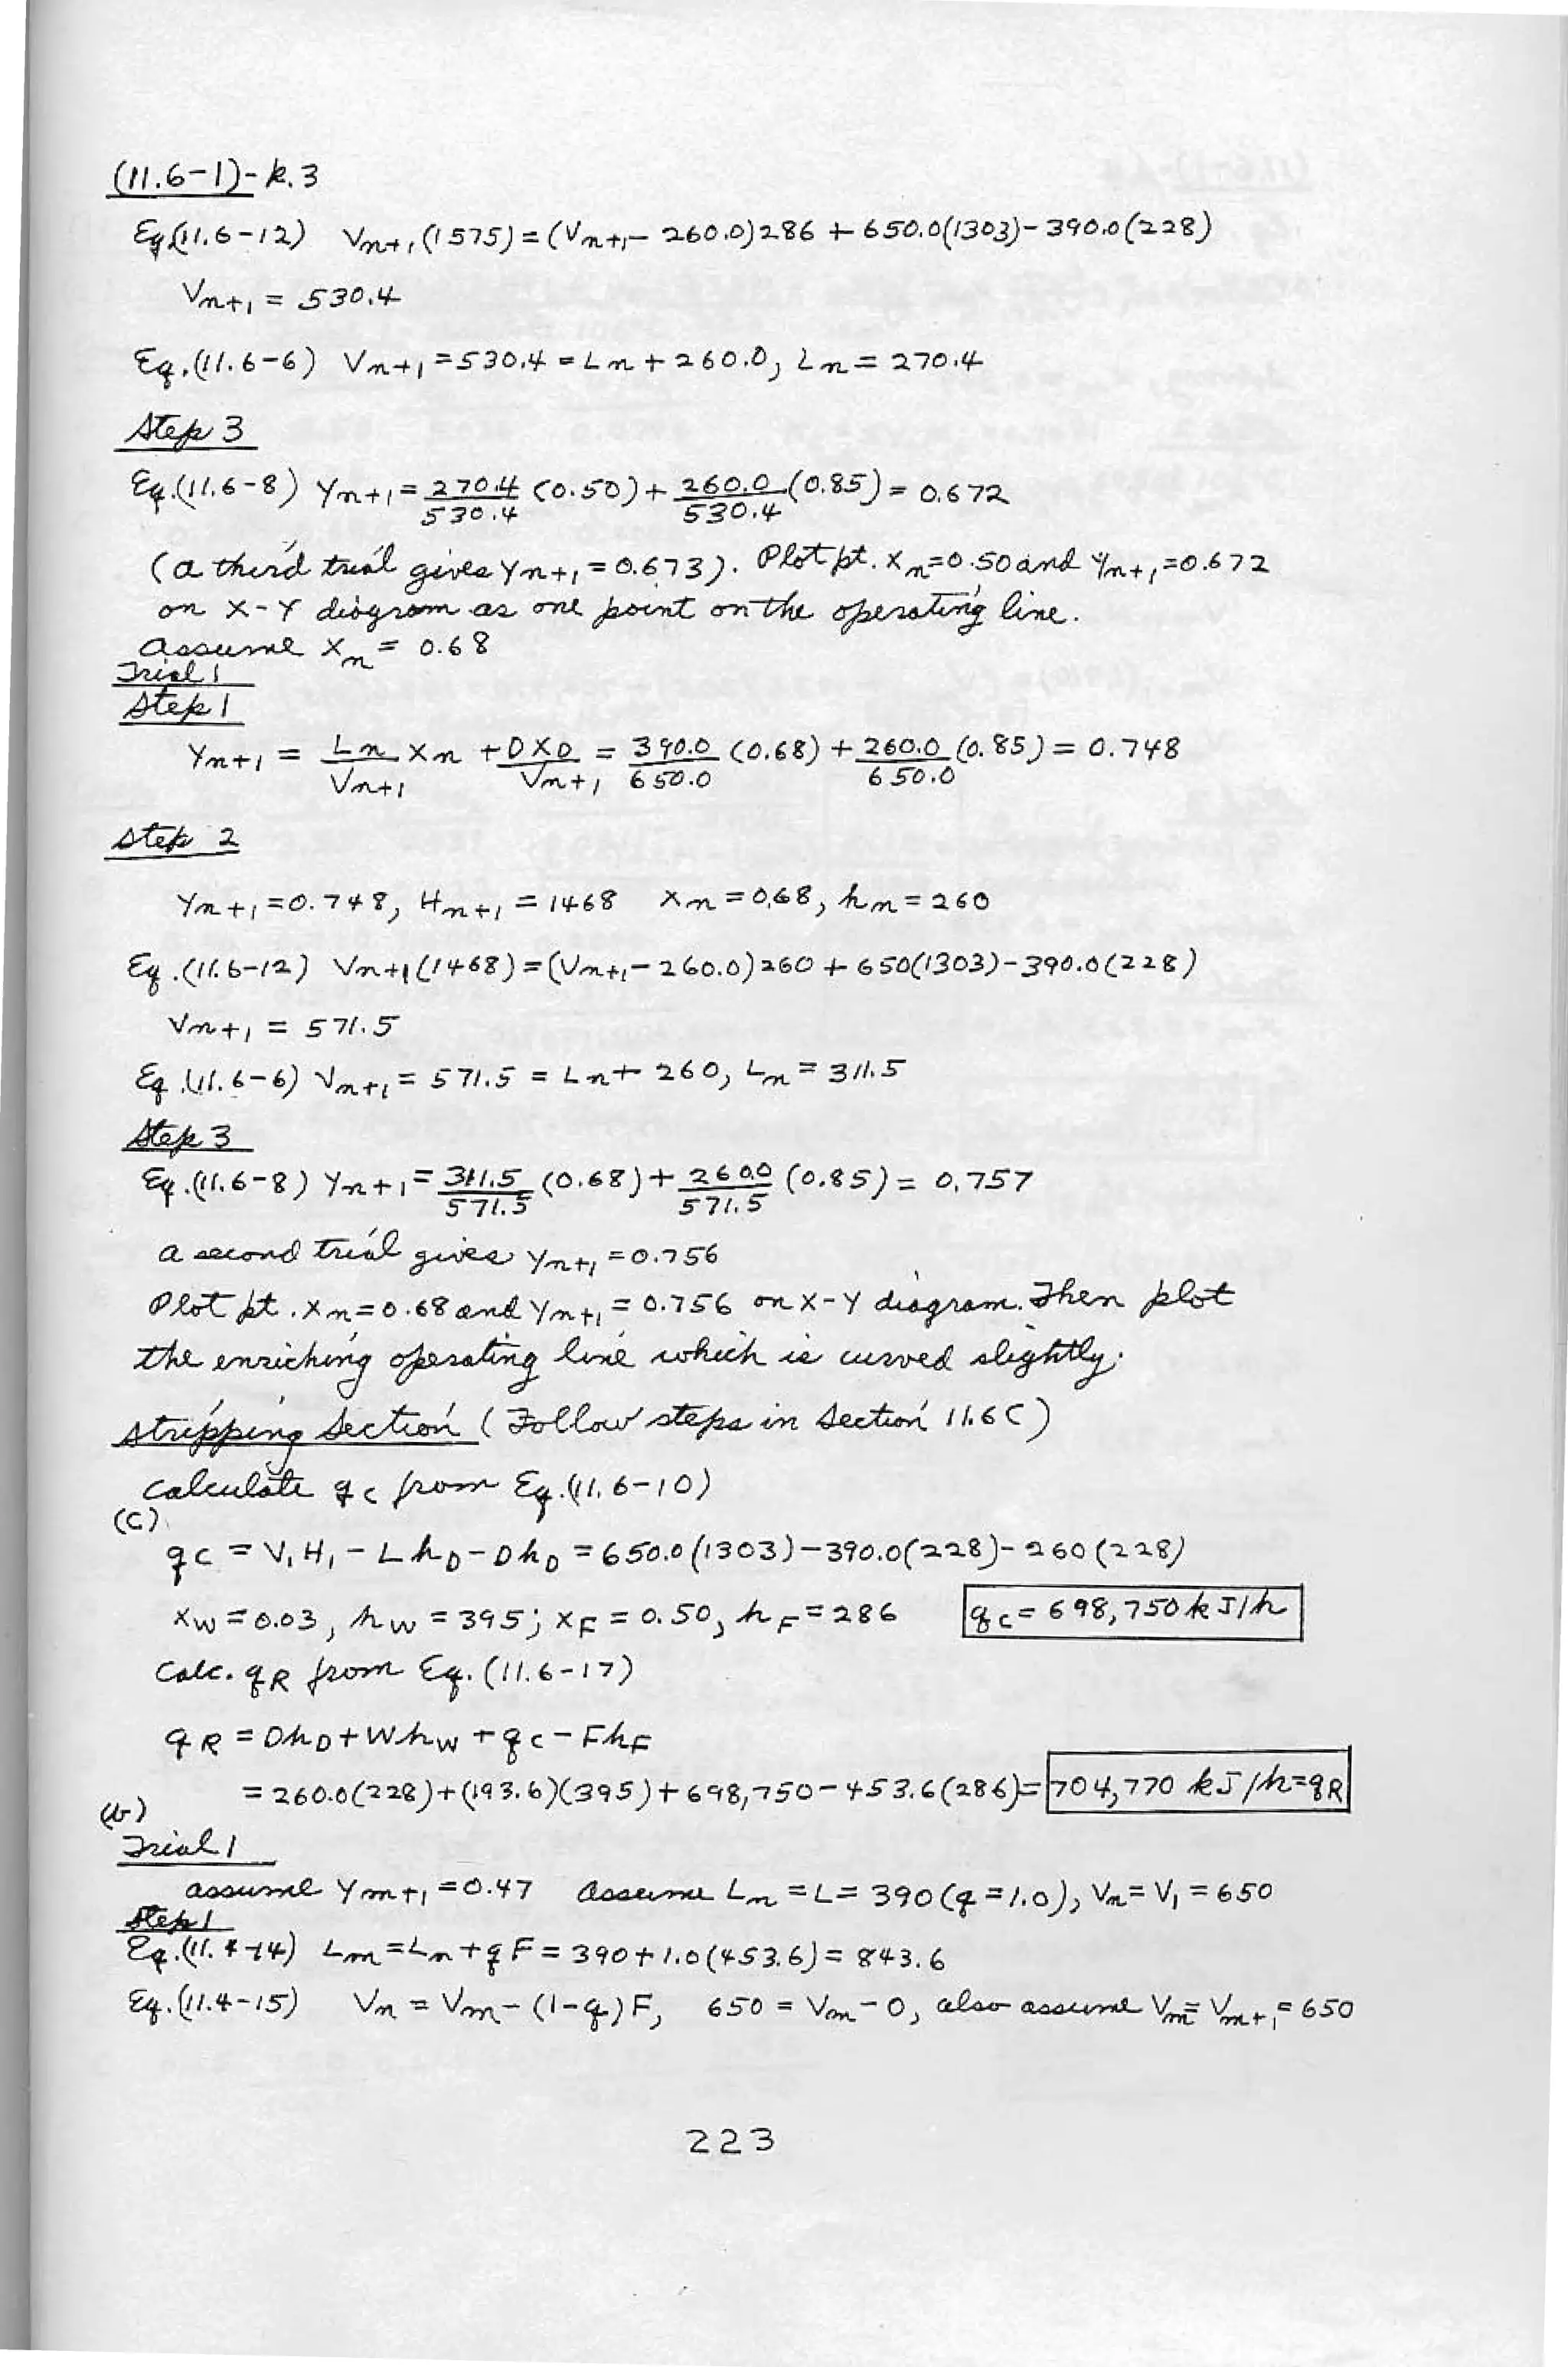 (11.6-1)-p.3
Eq.(11.6-12) Vn+1(1575)=(Vn+1-260.0)286+650.0(1303)-390.0(228)
Vn+1 = 530.4
Eq.(11.6-6) Vn+1=530.4=Ln+260.0, Ln=270.4
Step 3
Eq.(11.6-8) yn+1=270.4/530.4 (0.50)+260.0/530.4 (0.85)=0.672
(a third trial gives yn+1=0.673). Plot pt. xn=0.50 and yn+1=0.672
on x-y diagram as one point on the operating line.
Assume xn = 0.68
Trial 1
Step 1
yn+1 = Ln/Vn+1 xn + DxD/Vn+1 = 390.0/650.0 (0.68) + 260.0/650.0 (0.85) = 0.748
Step 2
yn+1=0.748, Hn+1=1468 xn=0.68, hn=260
Eq.(11.6-12) Vn+1(1468)=(Vn+1-260.0)260+650(1303)-390.0(228)
Vn+1 = 571.5
Eq.(11.6-6) Vn+1 = 571.5 = Ln+260, Ln=311.5
Step 3
Eq.(11.6-8) yn+1=311.5/571.5 (0.68)+260.0/571.5 (0.85)= 0.757
a second trial gives yn+1=0.756
Plot pt. xn=0.68 and yn+1=0.756 on x-y diagram. Then plot
the enriching operating line which is curved slightly.
Stripping Section (Follow steps in Section 11.6C)
Calculate qc from Eq.(11.6-10)
(c)
qc = V1H1-LhD-DhD=650.0(1303)-390.0(228)-260(228)
xW=0.03, hW=395; xF=0.50, hF=286 qc=698,750 kJ/h
Calc. qR from Eq. (11.6-17)
qR = DhD+WhW+qc-FhF
=260.0(228)+(193.6)(395)+698,750-453.6(286)=704,770 kJ/h=qR
(b)
Trial 1
assume ym+1=0.47 Assume Ln=L=390(q=1.0), Vn=V1=650
Step 1
Eq.(11.4-14) Lm=Ln+qF=390+1.0(453.6)=843.6
Eq.(11.4-15) Vn=Vm-(1-q)F, 650=Vm-0, also assume Vm=Vm+1=650
223